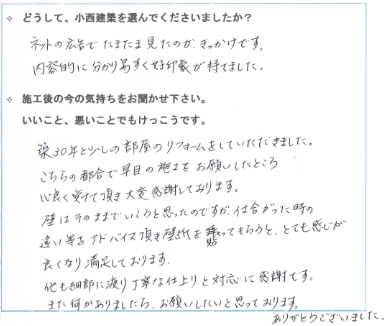 ✧ どうして、小西建築を選んでくださいましたか？
ネットの広告でたまたま見たのが、きっかけです。
内容的に分かり易すく好印象が持てました。
✧ 施工後の今の気持ちをお聞かせ下さい。
いいこと、悪いことでもけっこうです。
築30年と少しの部屋のリフォームをしていただきました。
こちらの都合で早目の施工をお願いしたところ
心良く受けて頂き大変感謝しております。
壁はそのままでいこうと思ったのですが、仕合がった時の
違い等をアドバイス頂き壁紙を貼ってもらうと、とても感じが
良くなり満足しております。
他も細部に渡り丁寧な仕上りと対応に感謝です。
また何かありましたら、お願いしたいと思っております。
ありがとうございました。